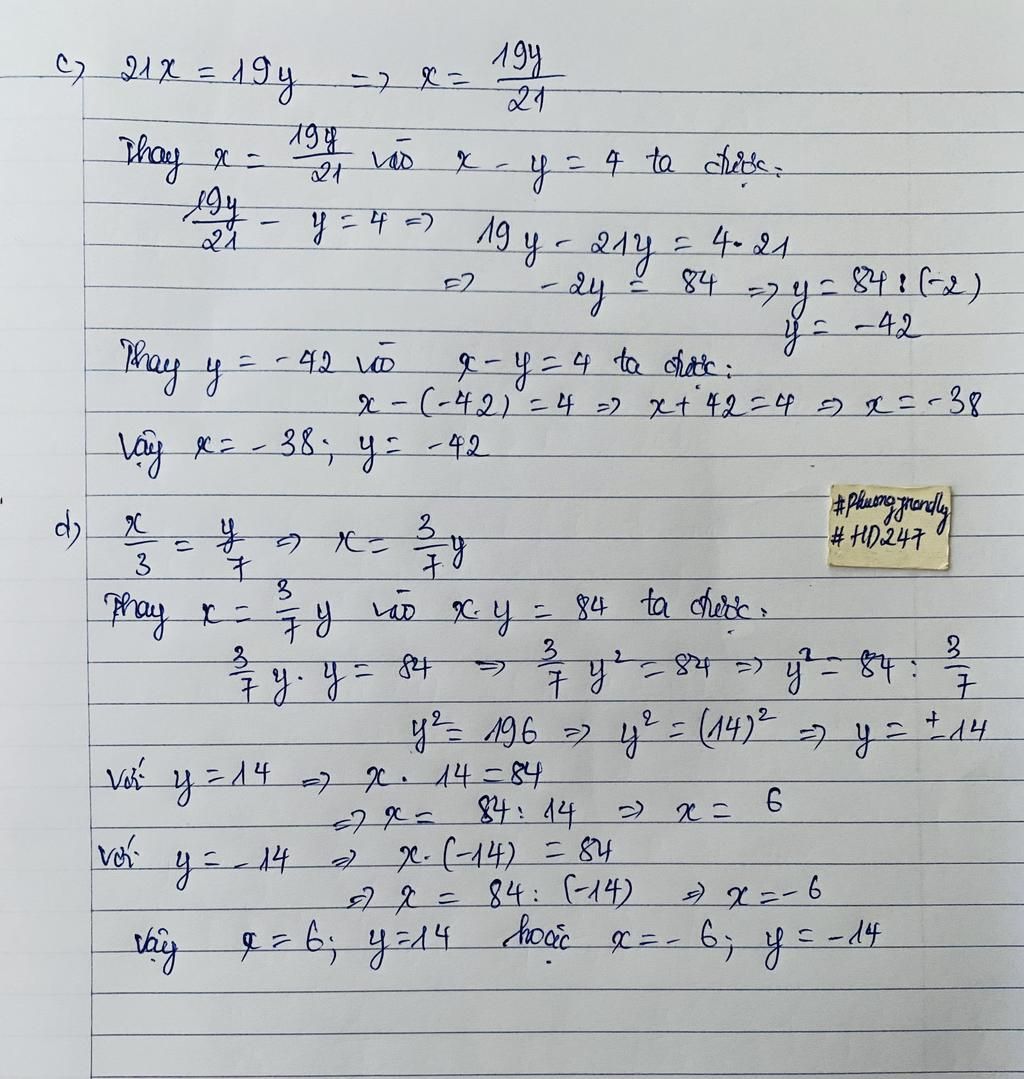 c) 21x = 19y => x = 19y/21
Thay x = 19y/21 vào x - y = 4 ta được:
19y/21 - y = 4 => 19y - 21y = 4.21
=> -2y = 84 => y = 84 : (-2)
y = -42
Thay y = -42 vào x - y = 4 ta được:
x - (-42) = 4 => x + 42 = 4 => x = -38
Vậy x = -38; y = -42
#Phuongfrondly
#HD247
d) x/3 = y/7 => x = 3/7 y
Thay x = 3/7 y vào x.y = 84 ta được:
3/7 y . y = 84 => 3/7 y² = 84 => y² = 84 : 3/7
y² = 196 => y² = (14)² => y = ±14
Với y = 14 => x . 14 = 84
=> x = 84 : 14 => x = 6
Với y = -14 => x . (-14) = 84
=> x = 84 : (-14) => x = -6
Vậy x = 6; y = 14 hoặc x = -6; y = -14